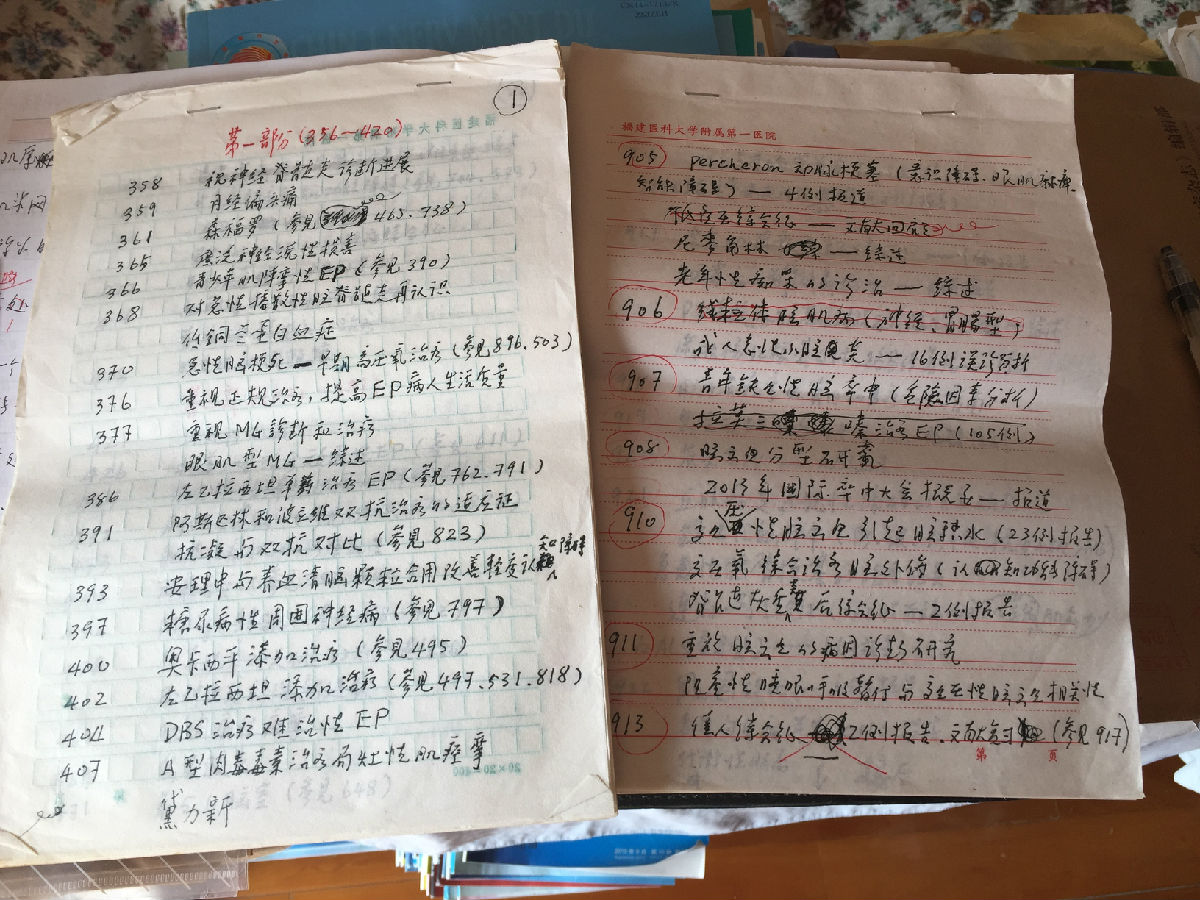 ①
第一部分(356—420)
358 视神经脊髓炎诊断进展
359 月经偏头痛
361 森福罗(参见 465.738)
365 神经
366 青少年肌阵挛性EP(参见390)
368 对急性播散性脑脊髓炎再认识
低铜兰蛋白血症
370 急性脑梗死—早期高压氧治疗(参见896.503)
376 重视正规治疗,提高EP病人生活质量
377 重视MG诊断和治疗
眼肌型MG—综述
386 左乙拉西坦单药治疗EP(参见762.791)
391 阿斯匹林和波立维双抗治疗的适应证
抗凝与双抗对比(参见823)
393 安理申与养血清脑颗粒合用改善轻度认知障碍
397 糖尿病性周围神经病(参见797)
400 奥卡西平添加治疗(参见495)
402 左乙拉西坦添加治疗(参见497.531.818)
404 DBS治疗难治性EP
407 A型肉毒毒素治疗局灶性肌痉挛
黛力新
20×20=400
福建医科大学附属第一医院
905 percheron动脉梗塞(意识障碍.眼肌麻痹.
智能障碍)—4例报道
综合征—文献回顾
尼麦角林—综述
老年性痴呆的诊治—综述
906 线粒体脑肌病(神经、胃肠型)
成人急性小脑炎—16例误诊分析
907 青年缺血性脑卒中(危险因素分析)
拉莫三嗪治疗EP(105例)
908 脑出血分型研究
2013年国际卒中大会报告—报道
910 高压性脑出血引起脑积水(23例报告)
高压氧综合治疗脑外伤(认知功能障碍)
脊髓灰质炎后综合征—2例报告
911 重症脑出血的病因诊断研究
阻塞性睡眠呼吸暂停与高压性脑出血相关性
913 佳人综合征 2例报告、文献复习(参见917)
第 页